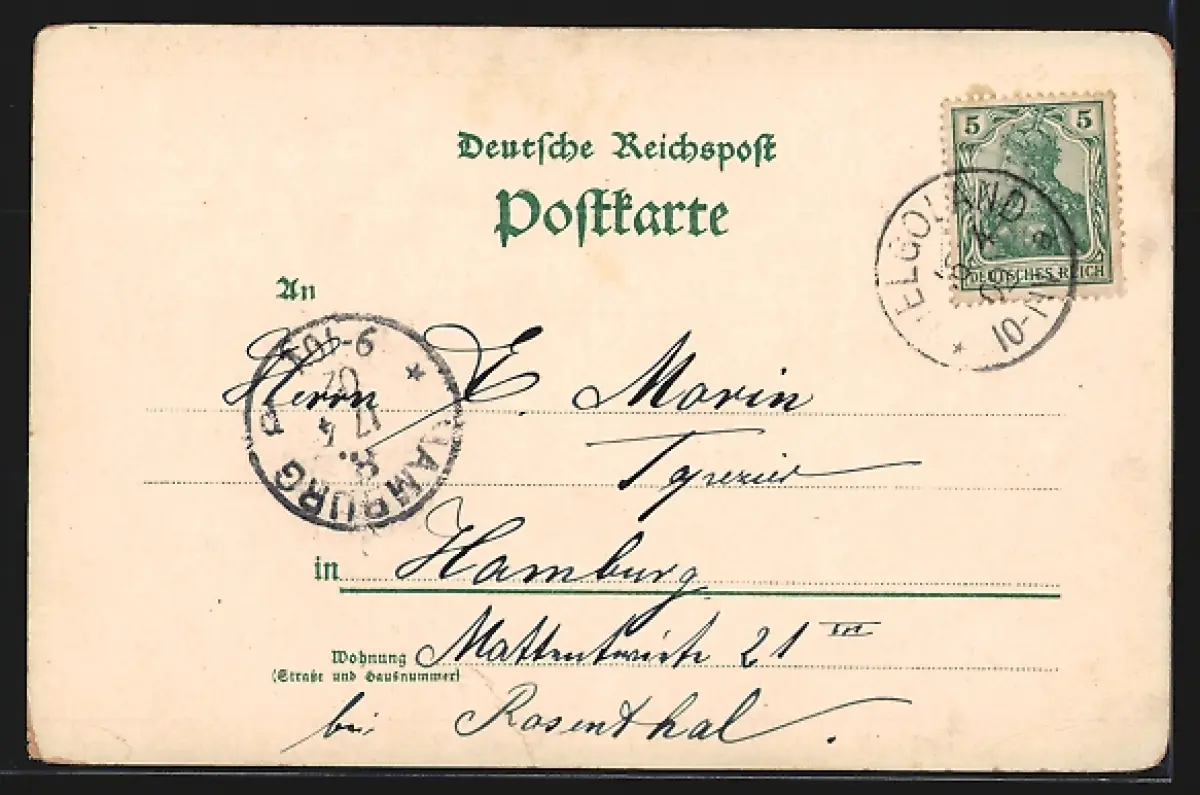 Deutsche Reichspost
Postkarte
5 5
DEUTSCHES REICH
HELGOLAND
10-11
An
Herrn E. Marin
Tapezier
HAMBURG
17 4
02
in Hamburg
Wohnung Mattentwiete 21 III
(Straße und Hausnummer)
bei Rosenthal.